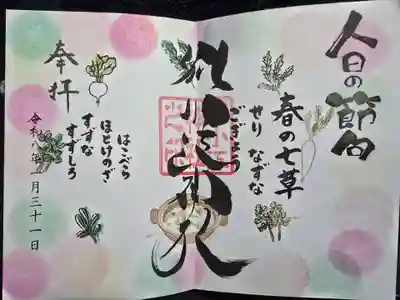 人日の節句
春の七草
せり なずな
ごぎょう
はこべら
ほとけのざ
すずな
すずしろ
奉拝
令和八年 月三十一日